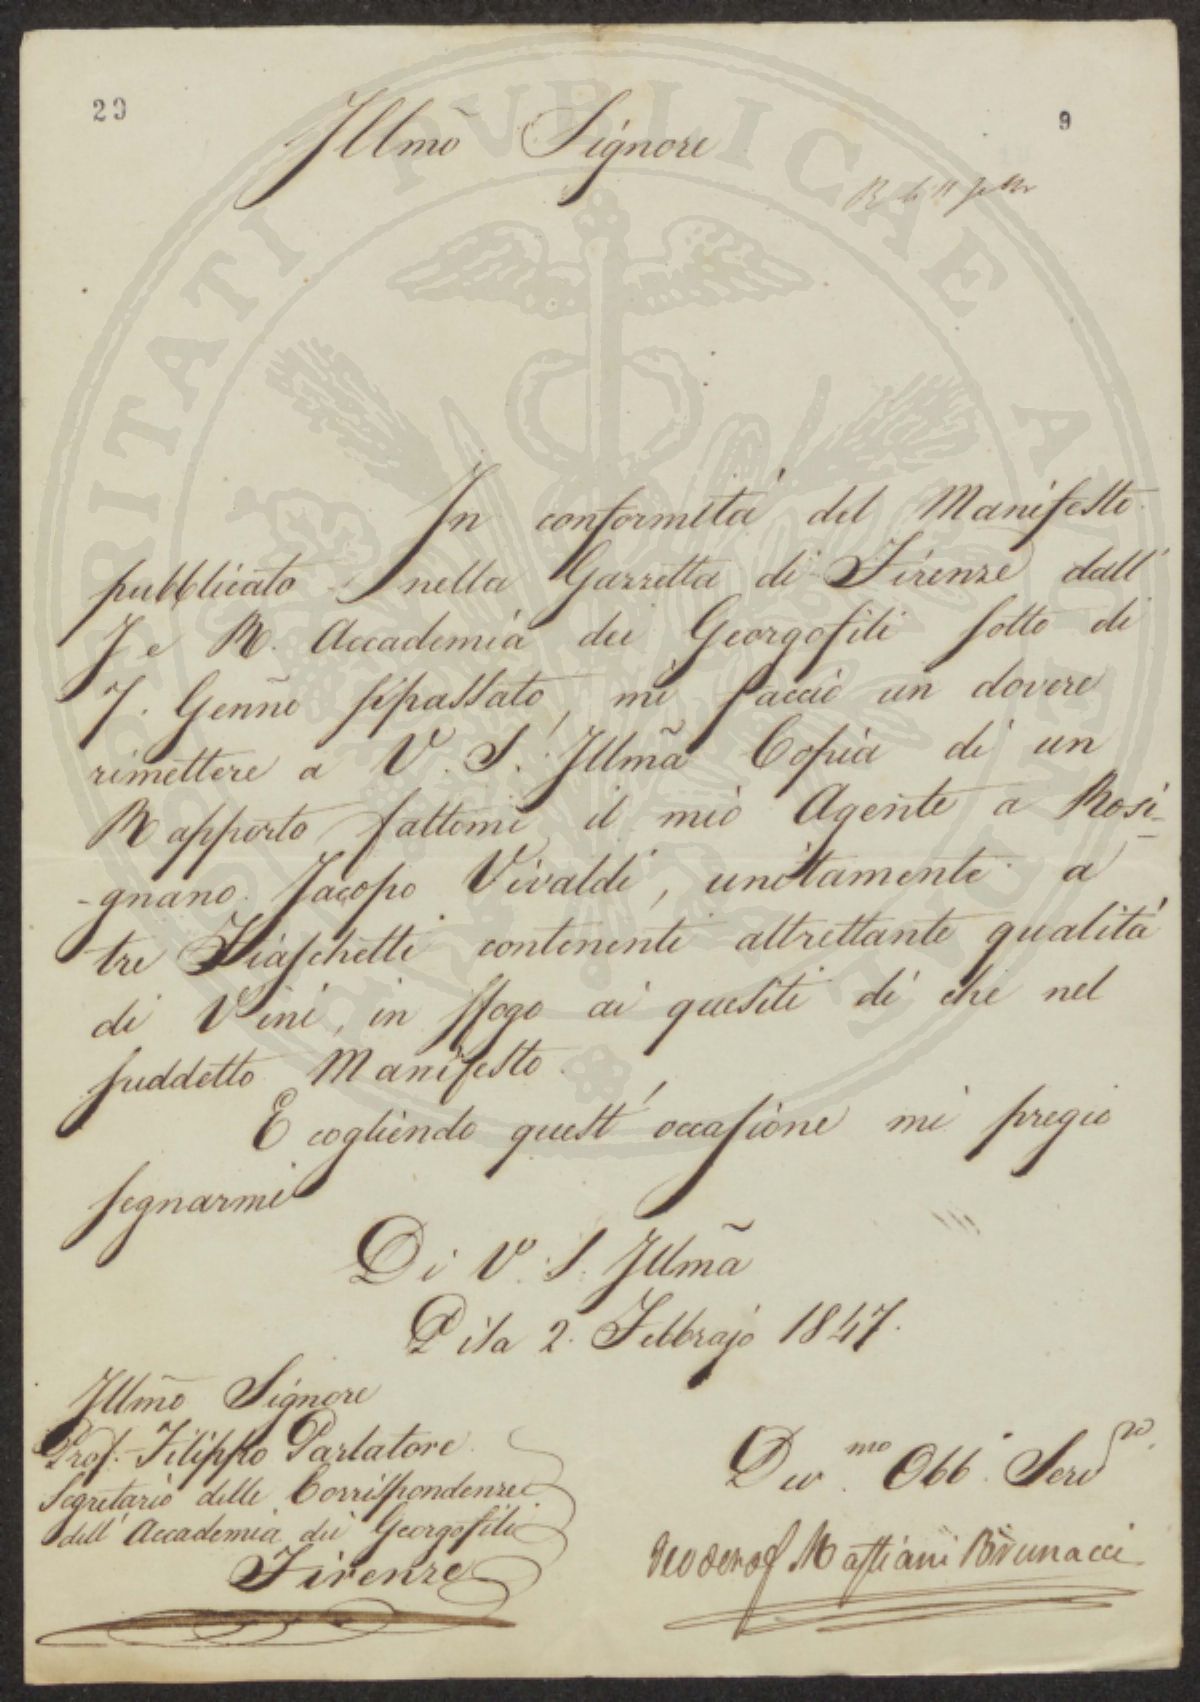 29
9
Illmõ Signore
In conformità del Manifesto
pubblicato nella Gazzetta di Firenze dall'
I e R. Accademia dei Georgofili sotto di
7. Gennõ p̃passato, mi faccio un dovere
rimettere a V. S. Illmã Copia di un
Rapporto fattomi il mio Agente a Rosi-
-gnano Jacopo Vivaldi, unitamente a
tre Fiaschetti contenenti altrettante qualità
di Vini, in sfogo ai quesiti di che nel
suddetto Manifesto.
E cogliendo quest'occasione mi pregio
segnarmi
Di V. S. Illmã
Pisa 2. Febbrajo 1847.
Illmõ Signore
Prof. Filippo Parlatore
Segretario delle Corrispondenze
dell'Accademia dei Georgofili
Firenze
Dev.mo Obb. Serv.re
Mastiani Brunacci
PROSPERITATI PUBLICAE AUGENDAE